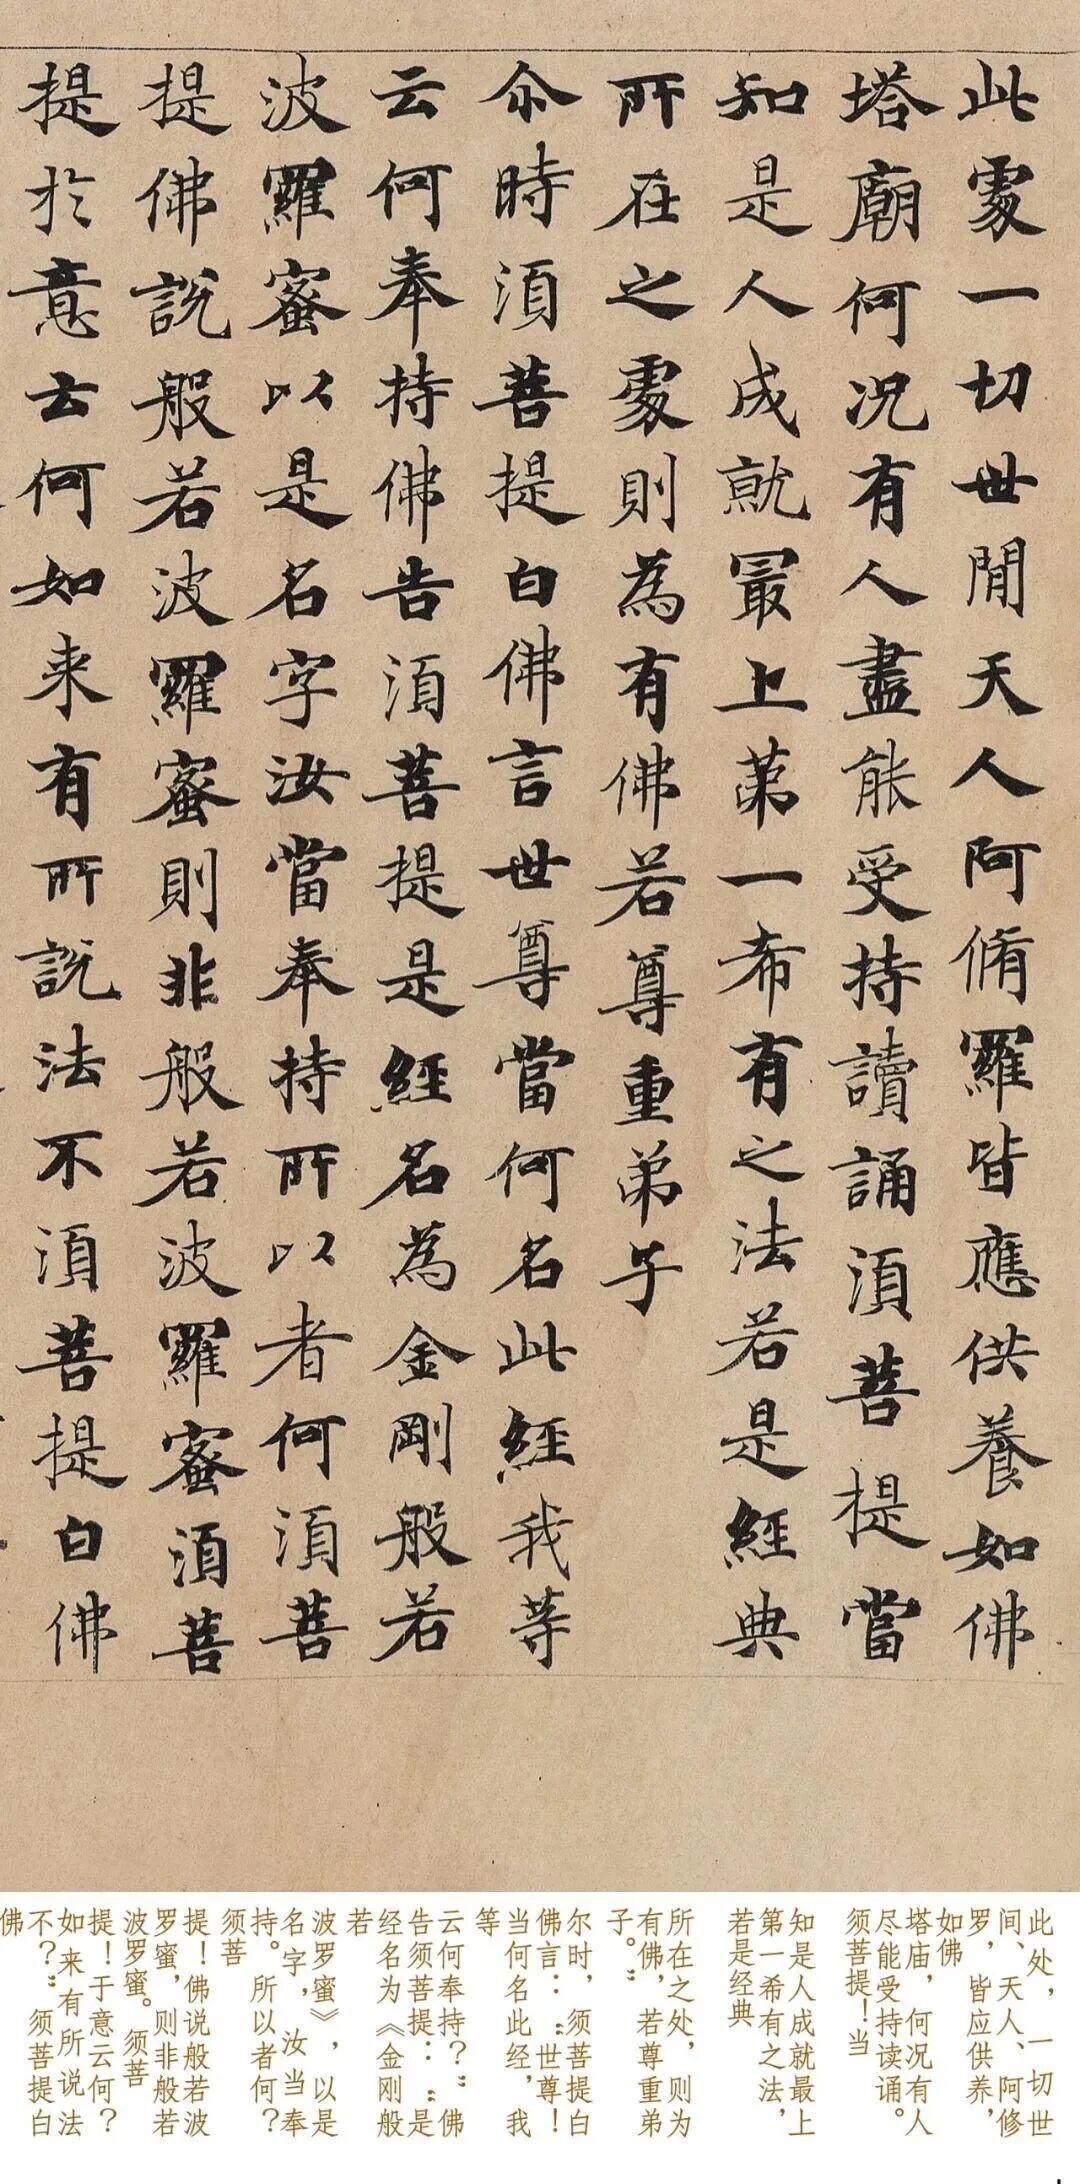 此處一切世間天人阿脩羅皆應供養如佛
塔廟何况有人盡能受持讀誦須菩提當
知是人成就最上第一希有之法若是經典
所在之處則為有佛若尊重弟子
尒時須菩提白佛言世尊當何名此經我等
云何奉持佛告須菩提是經名為金剛般若
波羅蜜以是名字汝當奉持所以者何須菩
提佛說般若波羅蜜則非般若波羅蜜須菩
提於意云何如来有所說法不須菩提白佛
此处，一切世
间、天人、阿修
罗，皆应供养，
如佛
塔庙，何况有人
尽能受持读诵。
须菩提！当
知是人成就最上
第一希有之法，
若是经典
所在之处，则为
有佛，若尊重弟
子。”
尔时，须菩提白
佛言：“世尊！
当何名此经，我
等
云何奉持？”佛
告须菩提：“是
经名为《金刚般
若
波罗蜜》，以是
名字，汝当奉
持。所以者何？
须菩
提！佛说般若波
罗蜜，则非般若
波罗蜜。须菩
提！于意云何？
如来有所说法
不？”须菩提白
佛